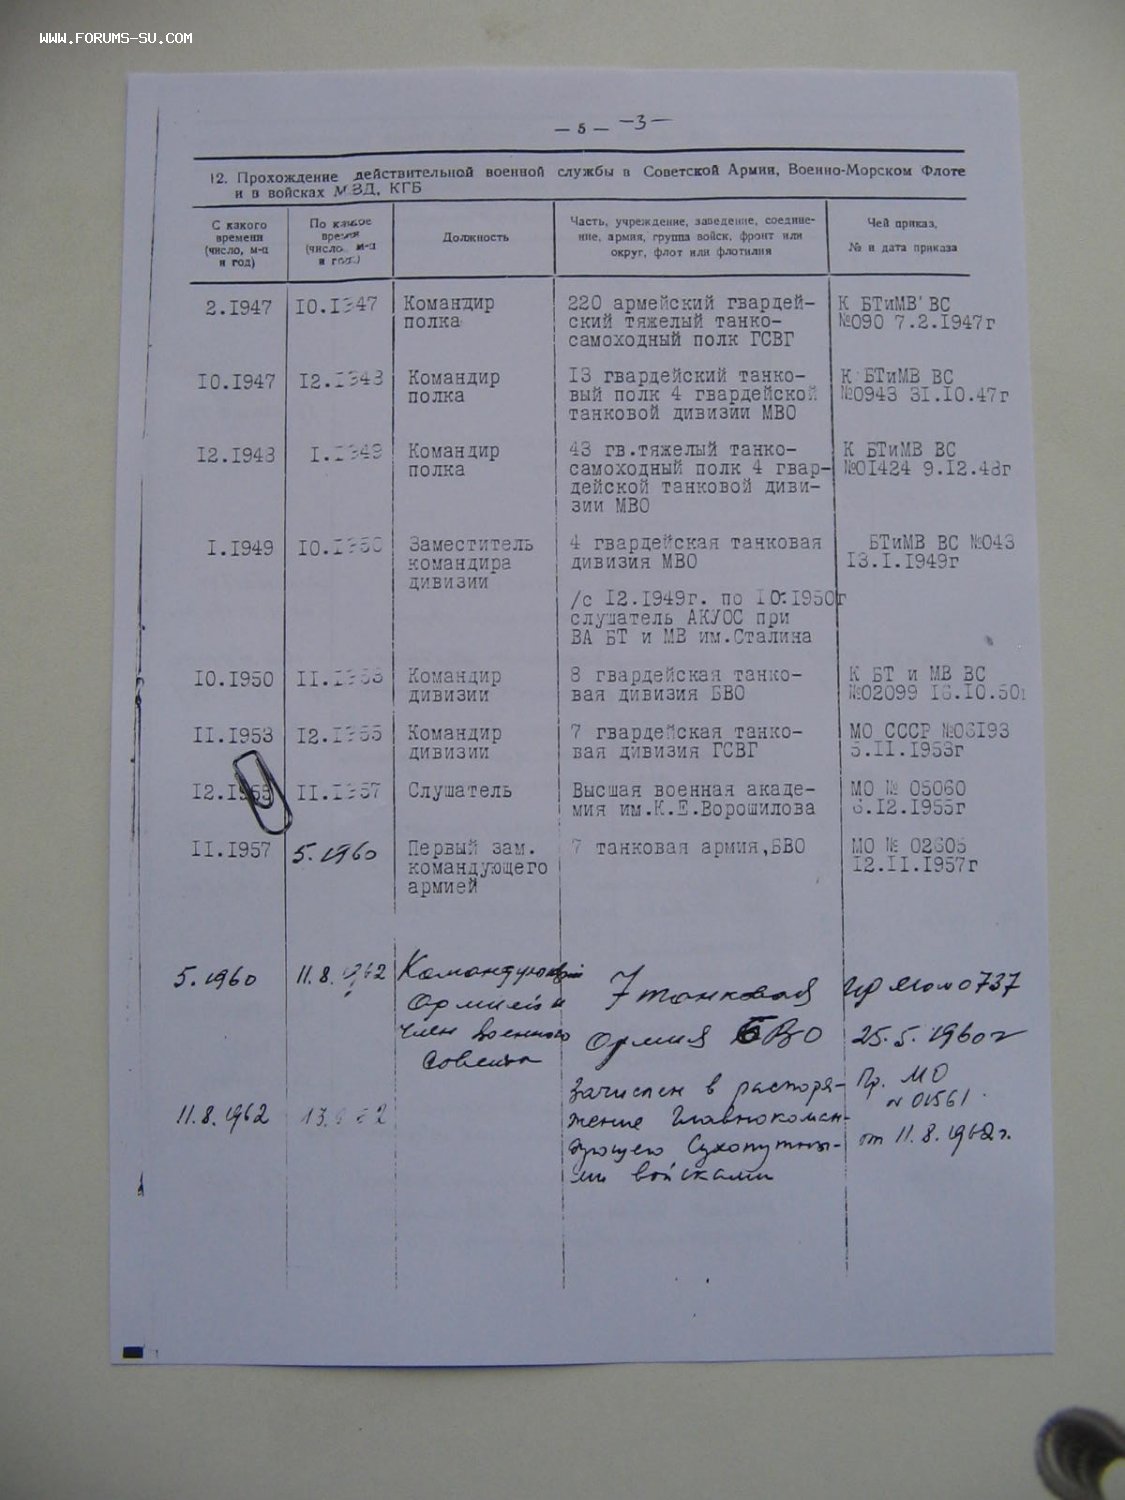 WWW.FORUMS-SU.COM
— 5 — —3—
12. Прохождение действительной военной службы в Советской Армии, Военно-Морском Флоте
и в войсках МВД, КГБ
С какого времени (число, м-ц и год)
По какое время (число, м-ц и год)
Должность
Часть, учреждение, заведение, соединение, армия, группа войск, фронт или округ, флот или флотилия
Чей приказ, № и дата приказа
2.I947 I0.I947 Командир 220 армейский гвардей- К БТиМВ ВС
полка ский тяжелый танко- №090 7.2.I947г
самоходный полк ГСВГ
I0.I947 I2.I948 Командир I3 гвардейский танко- К БТиМВ ВС
полка вый полк 4 гвардейской №0943 3I.I0.47г
танковой дивизии МВО
I2.I948 I.I949 Командир 43 гв.тяжелый танко- К БТиМВ ВС
полка самоходный полк 4 гвар- №0I424 9.I2.48г
дейской танковой диви-
зии МВО
I.I949 I0.I950 Заместитель 4 гвардейская танковая БТиМВ ВС №043
командира дивизия МВО I3.I.I949г
дивизии
/с I2.I949г. по I0.I950г
слушатель АКУОС при
ВА БТ и МВ им.Сталина
I0.I950 II.I953 Командир 8 гвардейская танко- К БТ и МВ ВС
дивизии вая дивизия БВО №02099 I6.I0.50г
II.I953 I2.I955 Командир 7 гвардейская танко- МО СССР №06I93
дивизии вая дивизия ГСВГ 5.II.I953г
I2.I955 II.I957 Слушатель Высшая военная акаде- МО № 05060
мия им.К.Е.Ворошилова 6.I2.I955г
II.I957 5.1960 Первый зам. 7 танковая армия,БВО МО № 02605
командующего I2.II.I957г
армией
5.1960 11.8.1962 Командующий 7 танковая пр МО № 0737
армией и армия БВО 25.5.1960г
член военного
совета
11.8.1962 Зачислен в распоря- Пр. МО
жение Главнокоман- № 01561
дующего Сухопутны- от 11.8.1962г.
ми войсками